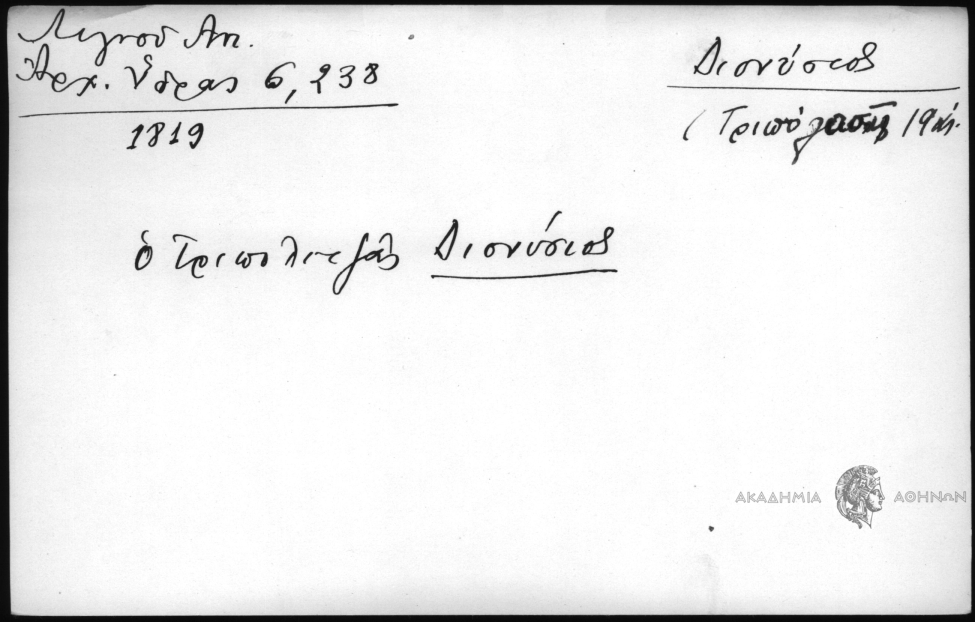 Λιγνοῦ Αντ.
Ἀρχ. Ὕδρας 6, 238
1819
Διονύσιος
(Τριπόλεως 19 αἰ.
ὁ Τριπολιτζᾶς Διονύσιος
ΑΚΑΔΗΜΙΑ ΑΘΗΝΩΝ